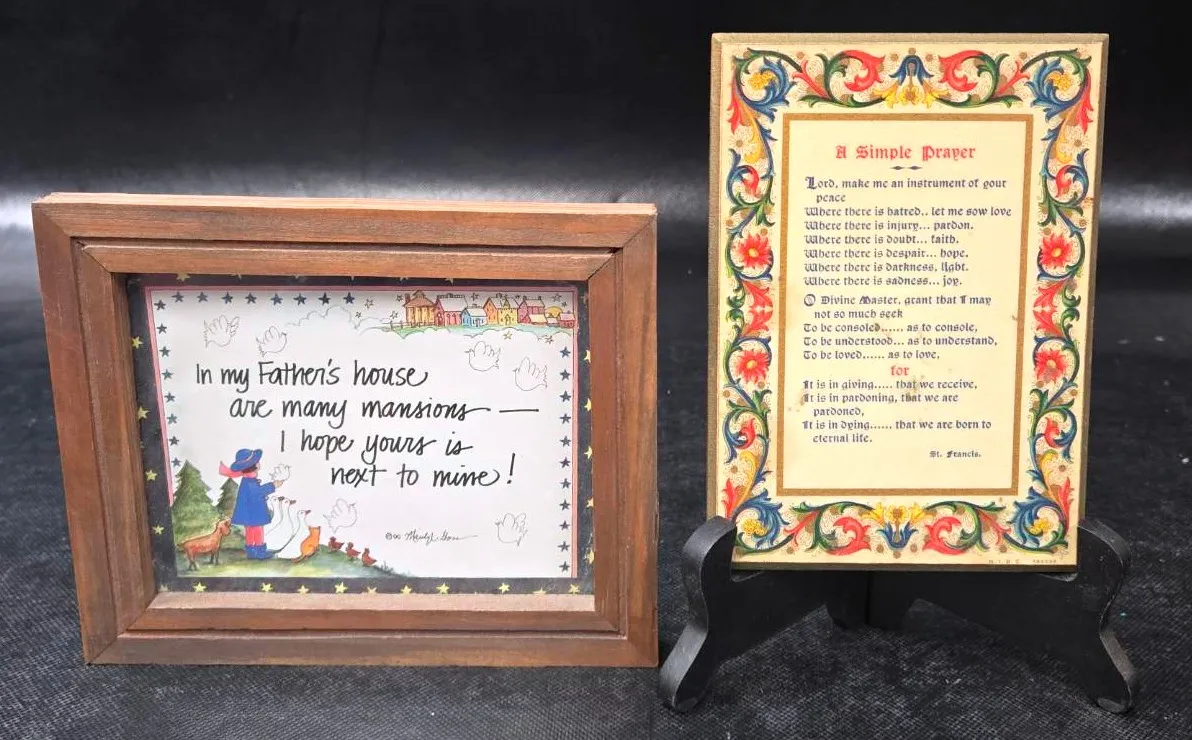 In my Father's house
are many mansions —
I hope yours is
next to mine!
A Simple Prayer
Lord, make me an instrument of your
peace
Where there is hatred.. let me sow love
Where there is injury... pardon.
Where there is doubt... faith.
Where there is despair... hope,
Where there is darkness, light.
Where there is sadness... joy.
O Divine Master, grant that I may
not so much seek
To be consoled...... as to console,
To be understood... as to understand,
To be loved...... as to love,
for
It is in giving..... that we receive,
It is in pardoning, that we are
pardoned,
It is in dying...... that we are born to
eternal life.
St. Francis.